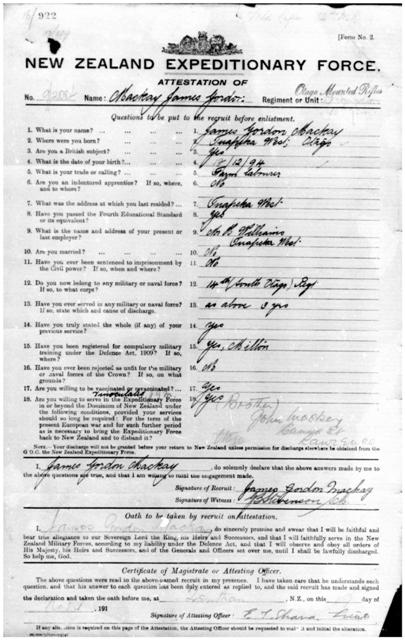 922
[Form No. 2.
NEW ZEALAND EXPEDITIONARY FORCE.
ATTESTATION OF
No. Name: Mackay James Gordon. Regiment or Unit: Otago Mounted Rifles
Questions to be put to the recruit before enlistment.
1. What is your name? 1. James Gordon Mackay
2. Where were you born? 2. Tuapeka West, Otago
3. Are you a British subject? 3. Yes
4. What is the date of your birth? 4. /12/94
5. What is your trade or calling? 5. Farm labourer
6. Are you an indentured apprentice? If so, where, and to whom? 6. No
7. What was the address at which you last resided? 7. Tuapeka West
8. Have you passed the Fourth Educational Standard or its equivalent? 8. Yes
9. What is the name and address of your present or last employer? 9. Williams Tuapeka West
10. Are you married? 10. No
11. Have you ever been sentenced to imprisonment by the Civil power? If so, when and where? 11. No
12. Do you now belong to any military or naval force? If so, to what corps? 12. 14th (South Otago) Regt
13. Have you ever served in any military or naval force? If so, state which and cause of discharge. 13. as above 3 yrs
14. Have you truly stated the whole (if any) of your previous service? 14. Yes
15. Have you been registered for compulsory military training under the Defence Act, 1909? If so, where? 15. Yes, Milton
16. Have you ever been rejected as unfit for the military or naval forces of the Crown? If so, on what grounds? 16. No
17. Are you willing to be vaccinated or revaccinated? 17. Yes
Inoculated
18. Are you willing to serve in the Expeditionary Force in or beyond the Dominion of New Zealand under the following conditions, provided your services should so long be required: For the term of the present European war and for such further period as is necessary to bring the Expeditionary Force back to New Zealand and to disband it? 18. Yes
(Brother)
John Mackay
Lawrence
Otago
NOTE.—Your discharge will not be granted before your return to New Zealand unless permission for discharge elsewhere be obtained from the G O.C. the New Zealand Expeditionary Force.
I, James Gordon Mackay, do solemnly declare that the above answers made by me to the above questions are true, and that I am willing to fulfil the engagement made.
Signature of Recruit: James Gordon Mackay
Signature of Witness:
Oath to be taken by recruit on attestation.
I, James Gordon Mackay, do sincerely promise and swear that I will be faithful and bear true allegiance to our Sovereign Lord the King, his Heirs and Successors, and that I will faithfully serve in the New Zealand Military Forces, according to my liability under the Defence Act, and that I will observe and obey all orders of His Majesty, his Heirs and Successors, and of the Generals and Officers set over me, until I shall be lawfully discharged. So help me, God.
Certificate of Magistrate or Attesting Officer.
The above questions were read to the above-named recruit in my presence. I have taken care that he understands each question, and that his answer to each question has been duly entered as replied to, and the said recruit has made and signed the declaration and taken the oath before me, at , N.Z., on this day of
191
Signature of Attesting Officer:
If any alteration is required on this page of the Attestation, the Attesting Officer should be requested to make it and initial the alteration.